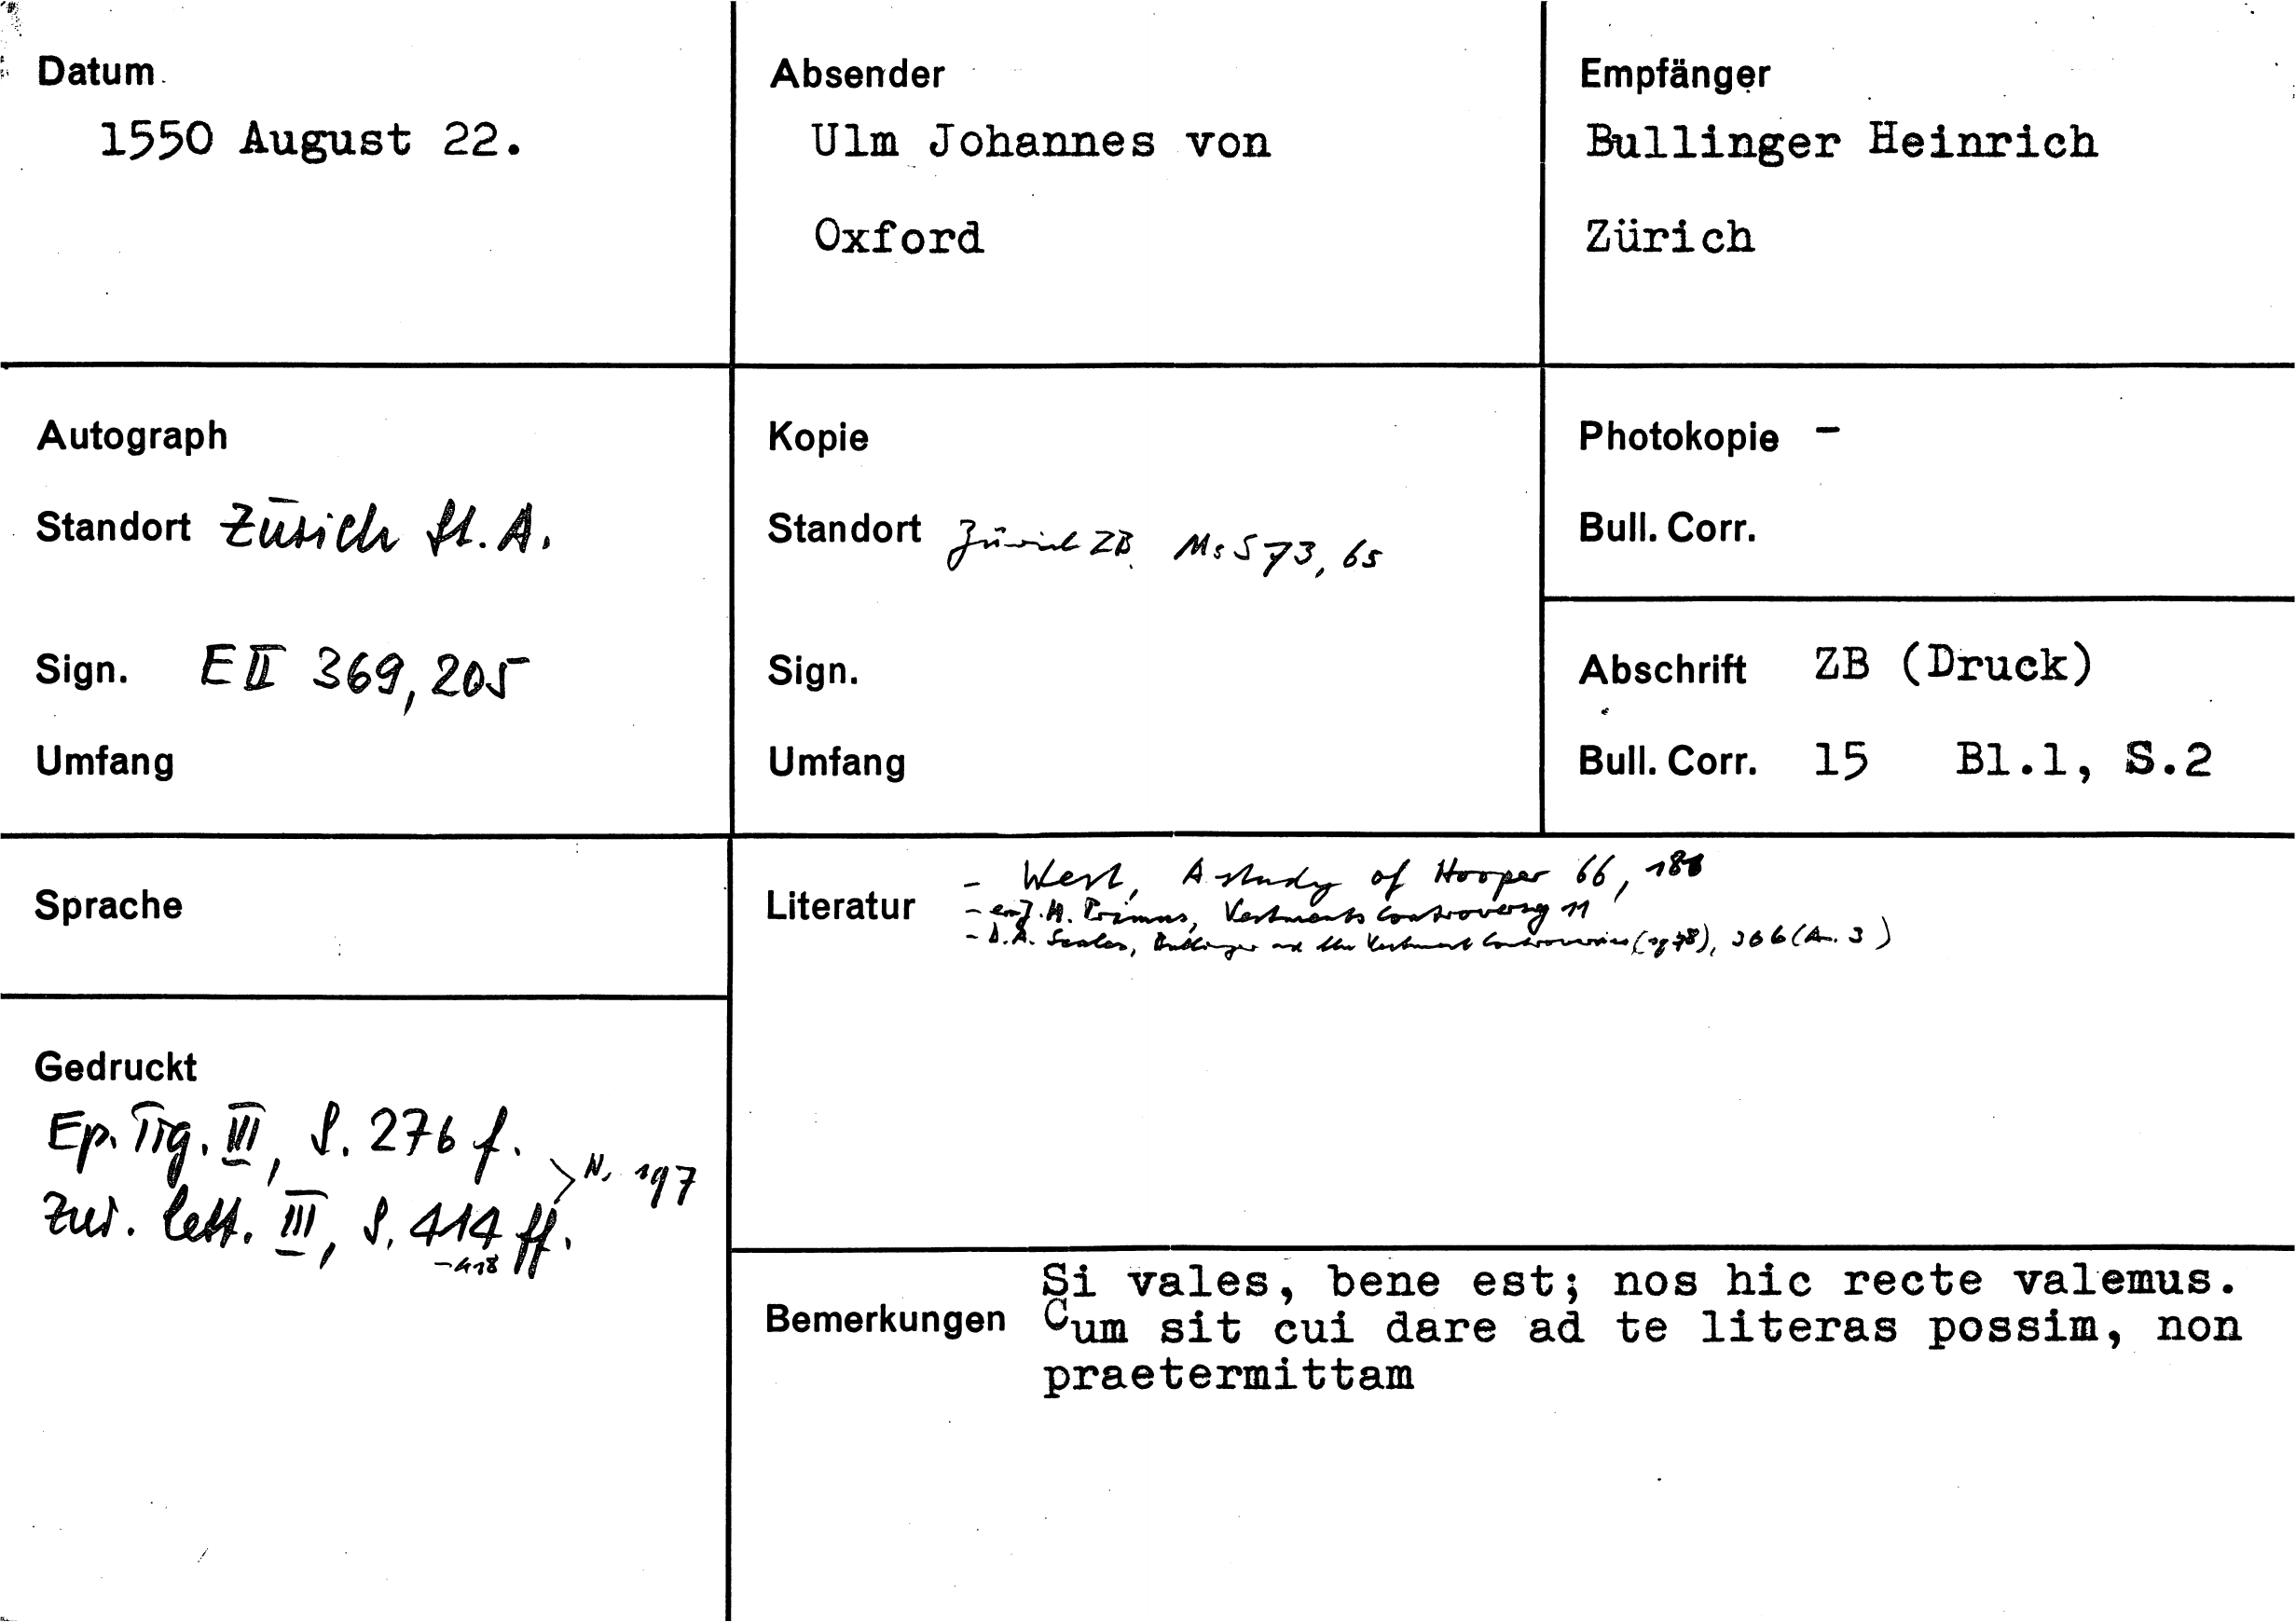 Datum
1550 August 22.
Absender
Ulm Johannes von
Oxford
Empfänger
Bullinger Heinrich
Zürich
Autograph
Standort Zürich St. A.
Sign. E II 369, 205
Umfang
Kopie
Standort Zürich ZB. Ms S 73, 65
Sign.
Umfang
Photokopie -
Bull. Corr.
Abschrift ZB (Druck)
Bull. Corr. 15 Bl.1, S.2
Sprache
Literatur - West, A study of Hooper 66,
- H. Primus, Vestments Controversy 11
- D.A. Scales, Bullinger and the Vestment Controversies (1978), 366 (A. 3)
Gedruckt
Ep. Tig. III, S. 276 f.
N. 197
Zur. lett. III, S. 414 ff.
-418
Bemerkungen
Si vales, bene est; nos hic recte valemus.
Cum sit cui dare ad te literas possim, non
praetermittam